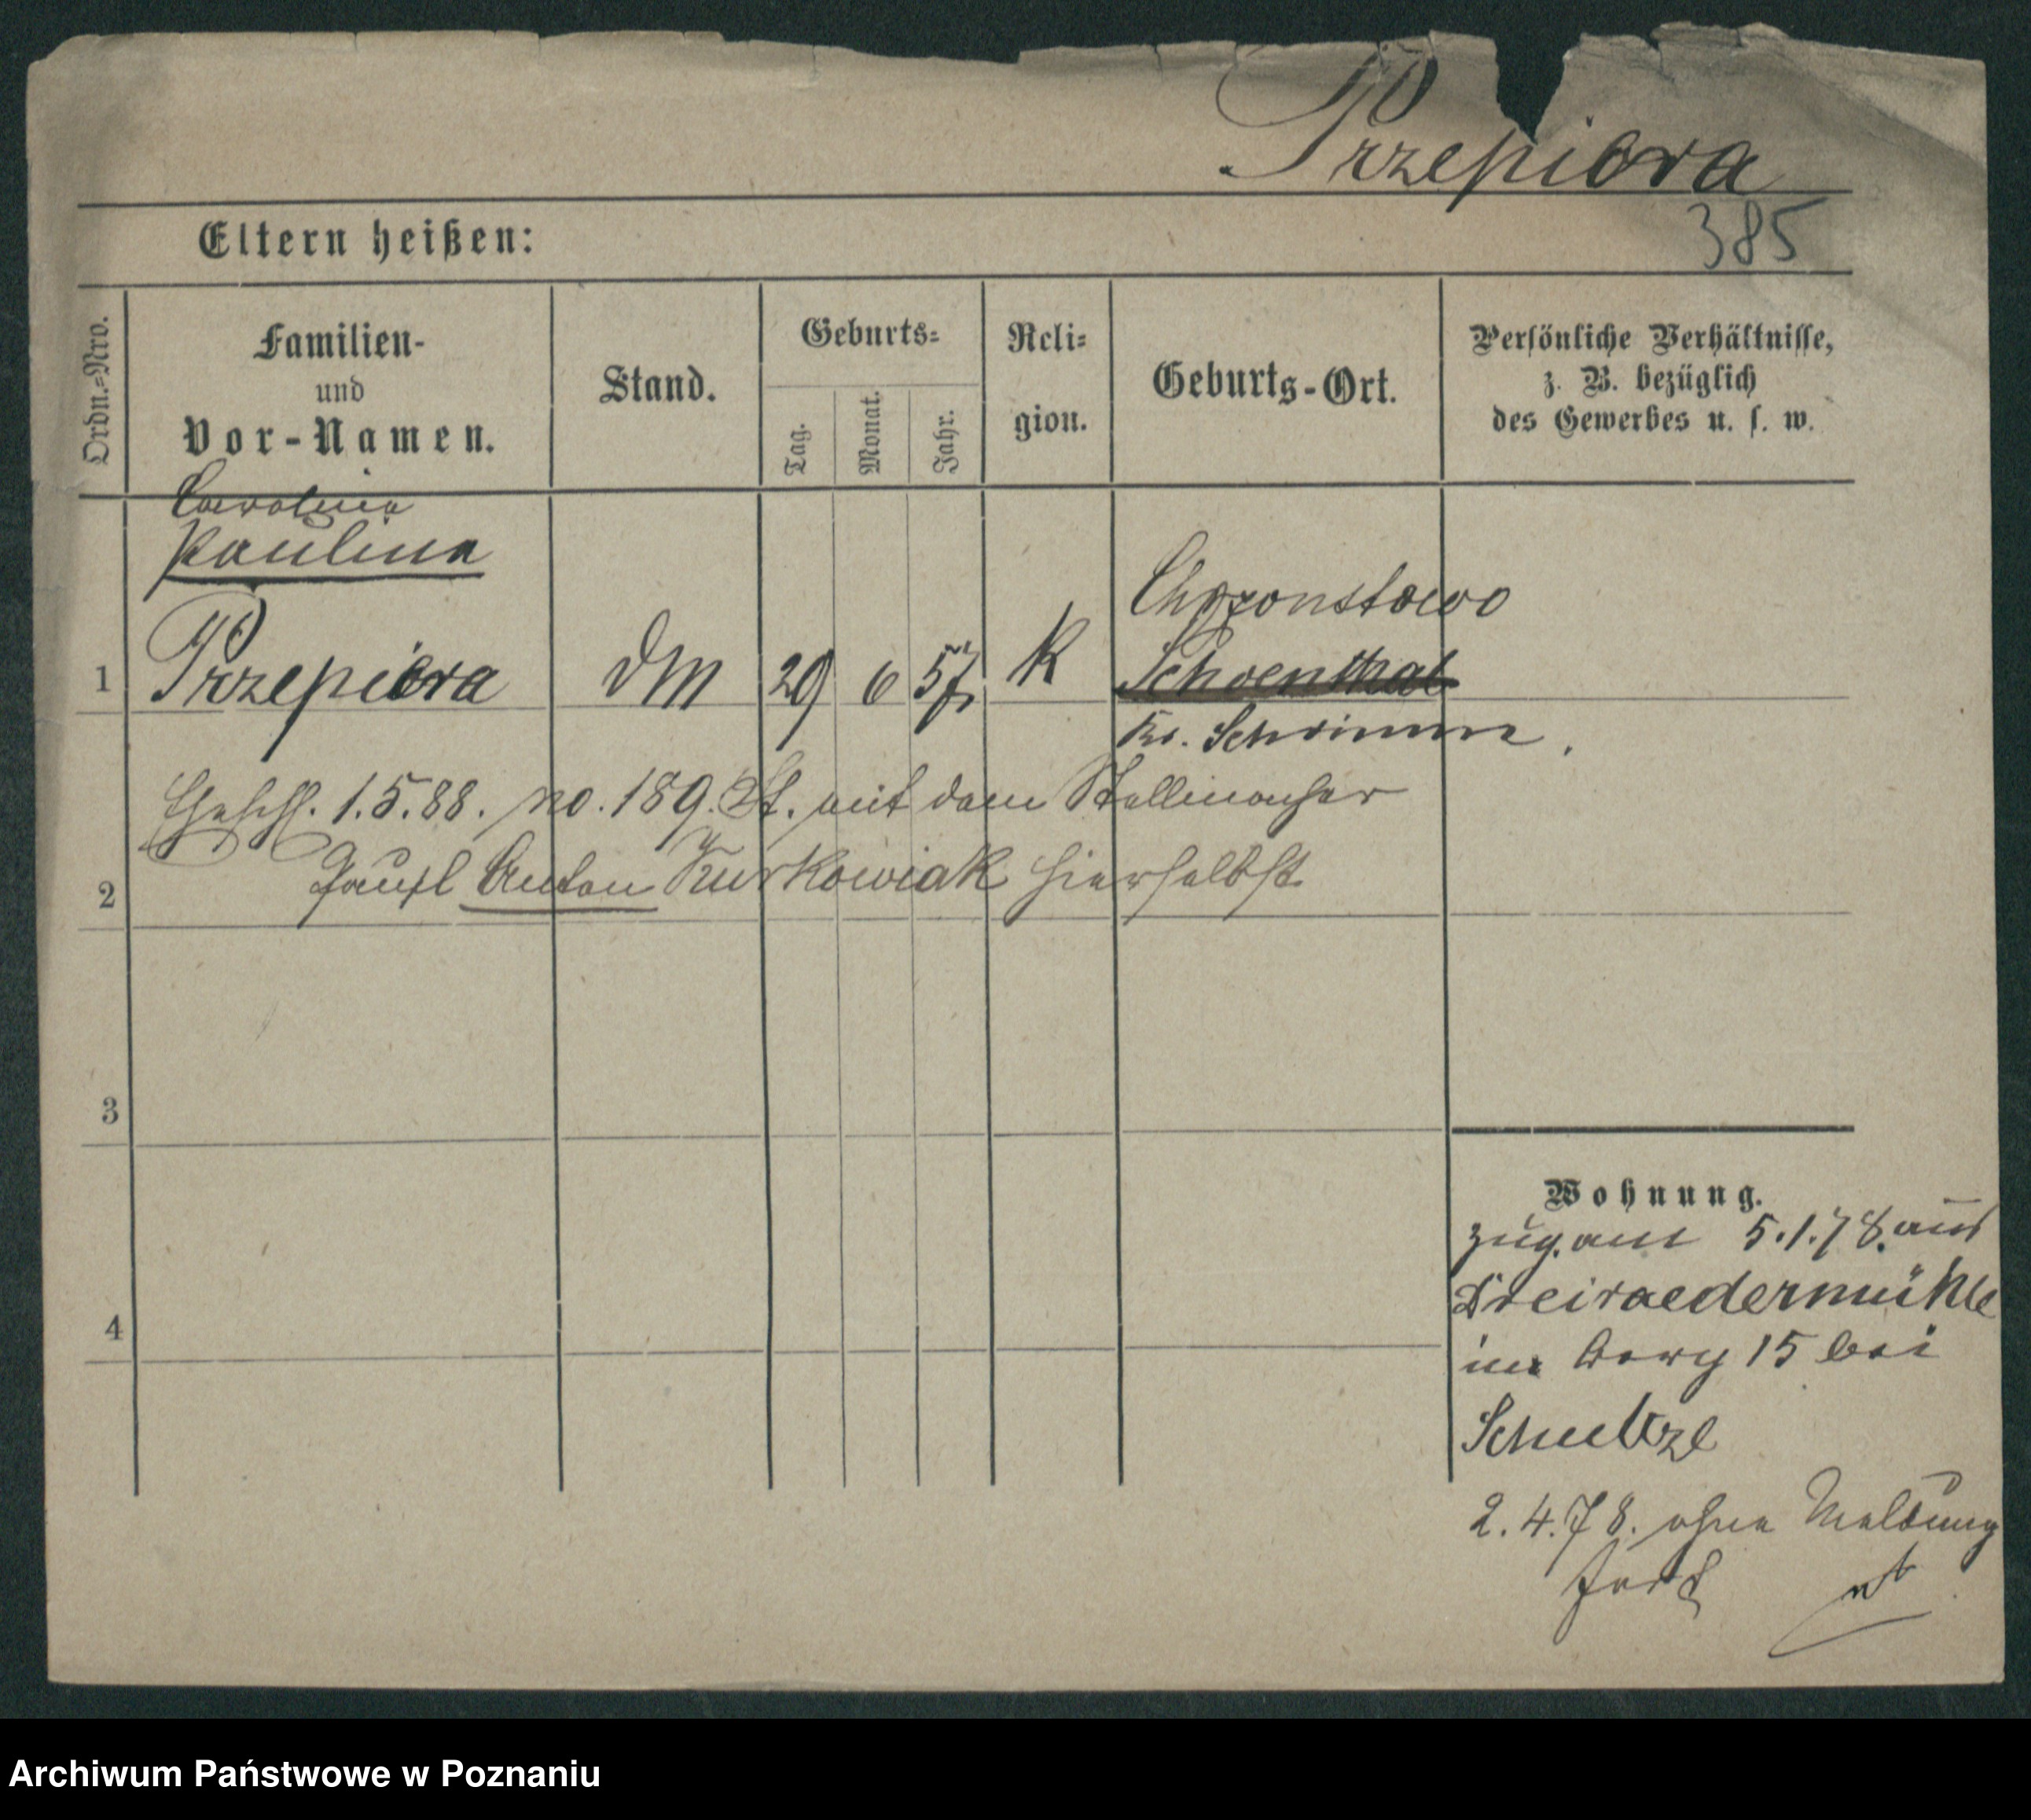 Przepiora
385
Eltern heißen:
Ordn.=Nro.
Familien-
und
Vor-Namen.
Stand.
Geburts=
Tag.
Monat.
Jahr.
Reli=
gion.
Geburts-Ort.
Persönliche Verhältnisse,
z. B. bezüglich
des Gewerbes u. s. w.
Carolina
Paulina
1 Przepiora DM 29 6 57 K
Chrzonstowo
Schoenthal
Kr. Schrimm.
Ehschl. 1.5.88. no. 189. St. mit dem Stellmacher
2
Anton Kurkowiak hierselbst
3
4
Wohnung.
Zug. am 5.1.78. aus
Dreiraedermühle
im 15 bei
Schultze
2.4.78. ohne Meldung
fort
Archiwum Państwowe w Poznaniu